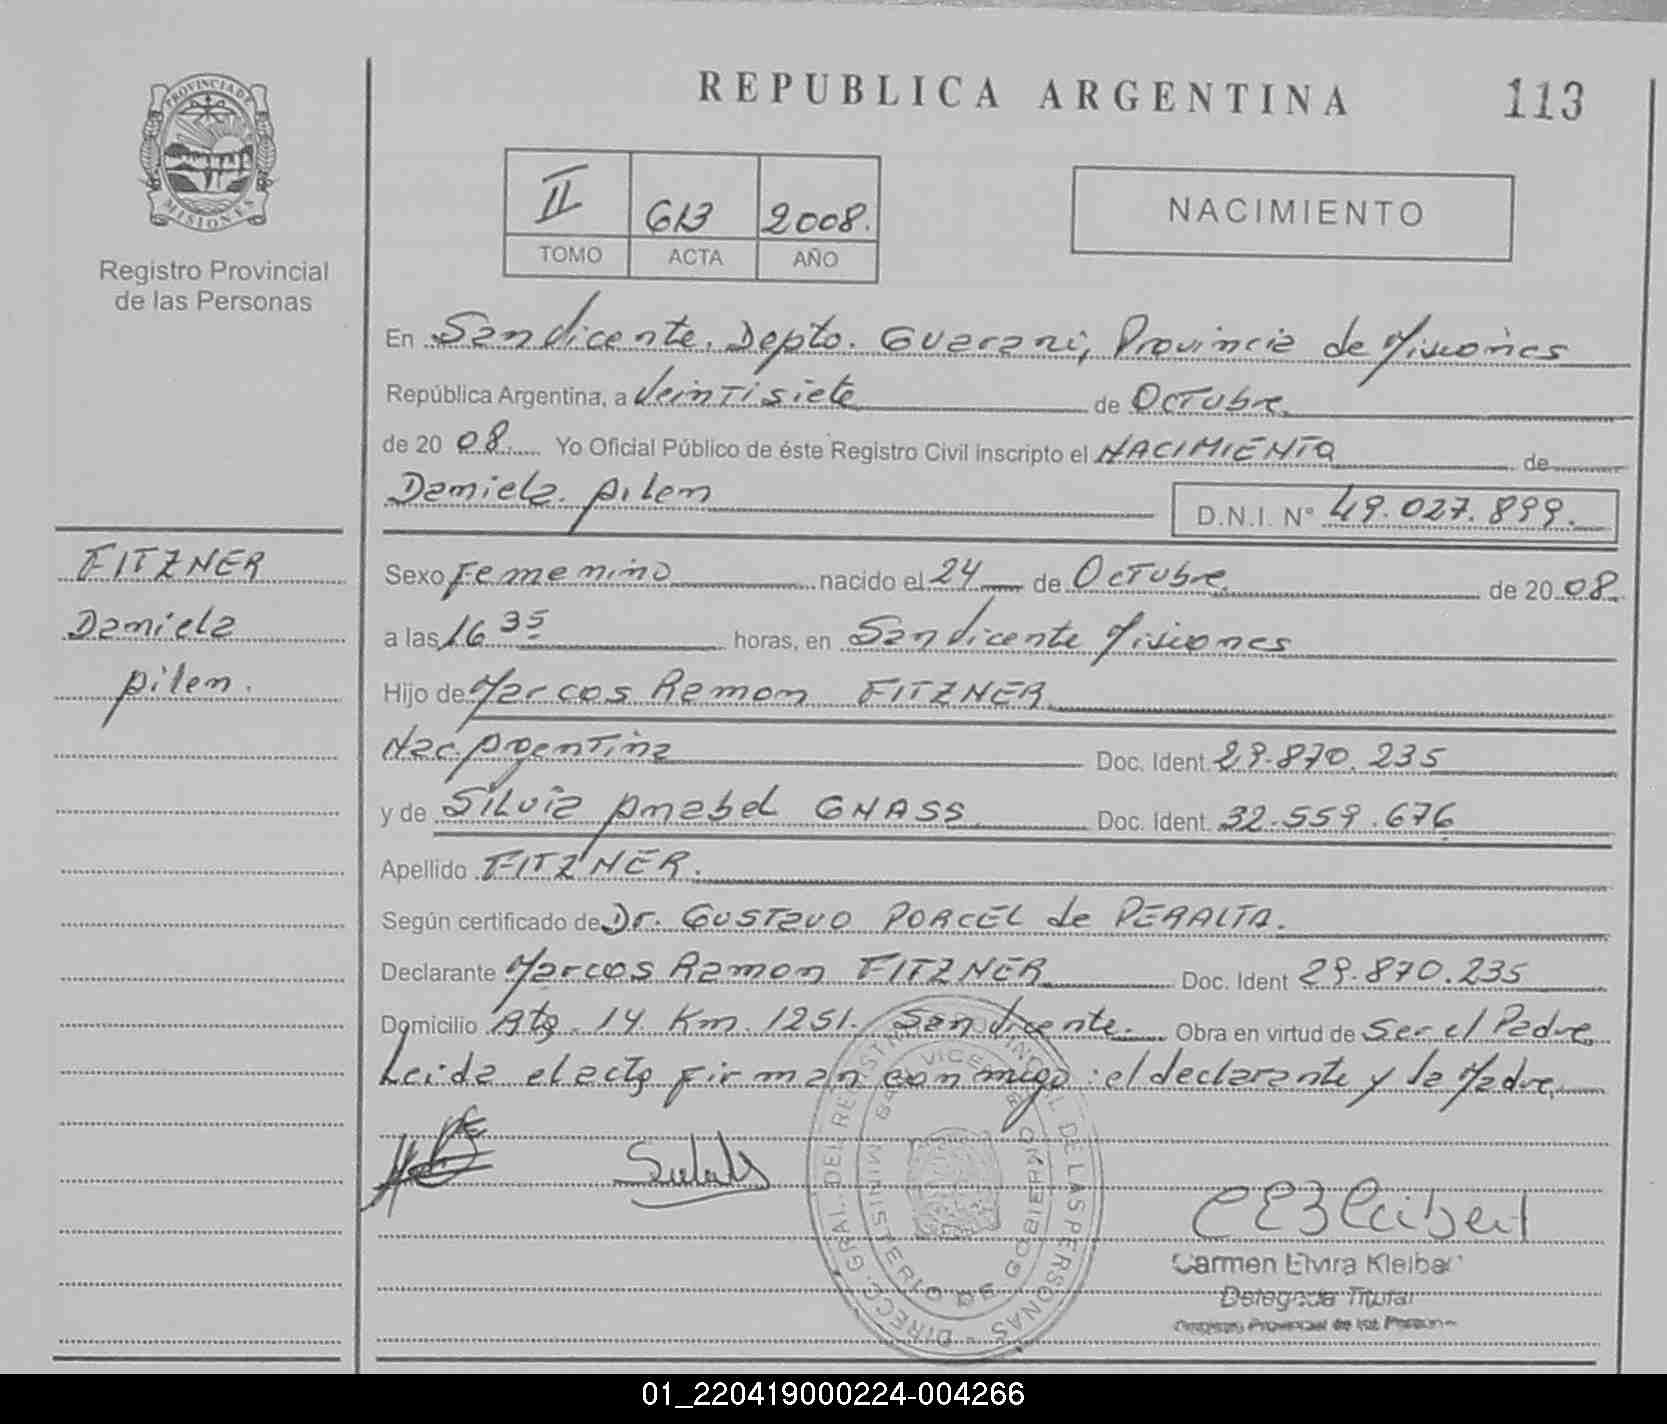 PROVINCIA DE
MISIONES
Registro Provincial
de las Personas
REPUBLICA ARGENTINA 113
II 613 2008.
TOMO ACTA AÑO
NACIMIENTO
En San Vicente. Depto. Guarani, Provincia de Misiones
República Argentina, a Veintisiete de Octubre
de 20 08 Yo Oficial Público de éste Registro Civil inscripto el NACIMIENTO de
Daniela pilen D.N.I. N° 49.027.899.
FITZNER
Daniela
pilen.
Sexo Femenino nacido el 24 de Octubre de 20 08
a las 16 35 horas, en San Vicente Misiones
Hijo de Marcos Ramon FITZNER
Nac. Argentina Doc. Ident. 29.870.235
y de Silvia Anabel GNASS Doc. Ident. 32.559.676
Apellido FITZNER.
Según certificado de Dr. GUSTavo PORCEL de PERALTA.
Declarante Marcos Ramon FITZNER Doc. Ident 29.870.235
Domicilio Rta. 14 Km. 1251. San Vicente. Obra en virtud de Ser el Padre
Leida el acta firman conmigo: el declarante y la Madre
DIRECC. GRAL. DEL REGISTRO PROVINCIAL DE LAS PERSONAS
MINISTERIO DE GOBIERNO
Carmen Elvira Kleiber
Delegada Titular
Registro Provincial de las Personas
01_220419000224-004266